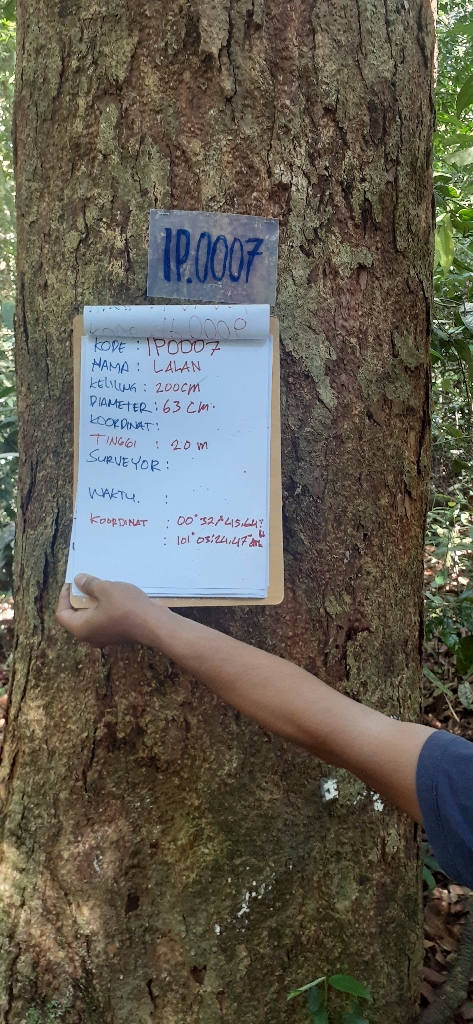 IP.0007
KODE : IP0007
NAMA : LALAN
KELILING : 200CM
DIAMETER : 63 CM.
KOORDINAT :
TINGGI : 20 m
SURVEYOR :
WAKTU. :
KOORDINAT : 00° 32'
: 101° 03' 24.47"